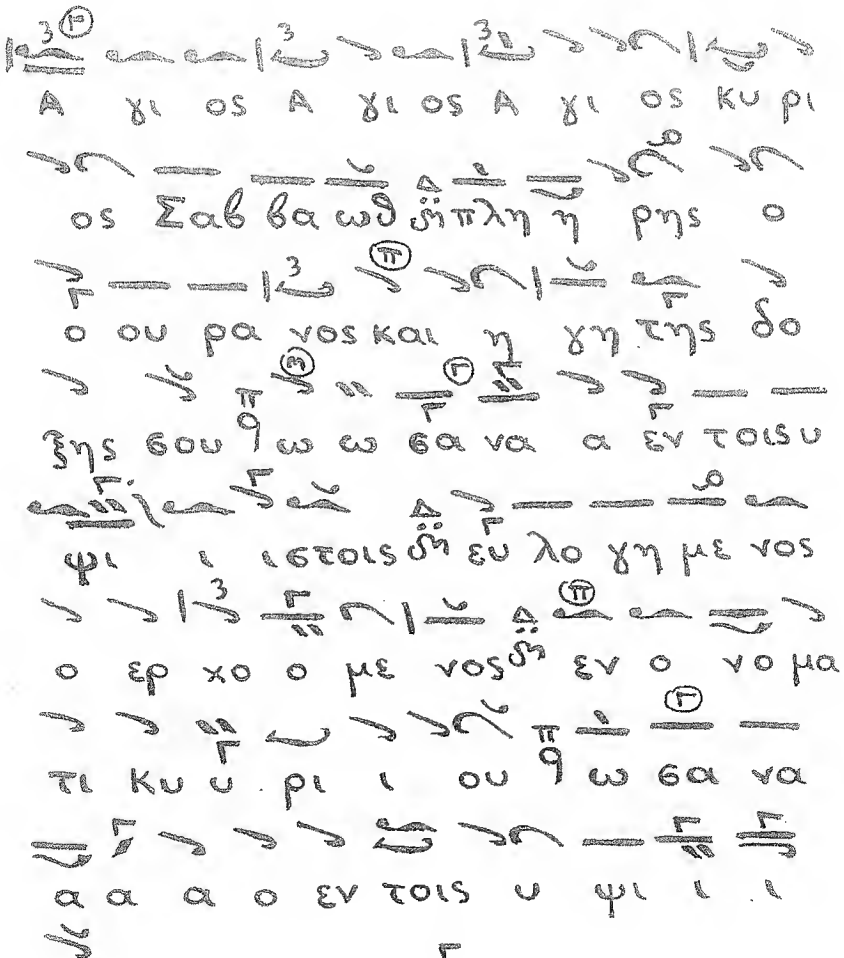 Α γι ος Α γι ος Α γι ος κυ ρι
ος Σαβ βα ωθ πλη η ρης ο
ο ου ρα νος και η γη της δο
ξης σου ω ω σα να α εν τοις υ
ψι ι ιστοις ευ λο γη με νος
ο ερ χο ο με νος εν ο νο μα
τι κυ υ ρι ι ου ω σα να
α α α ο εν τοις υ ψι ι ι